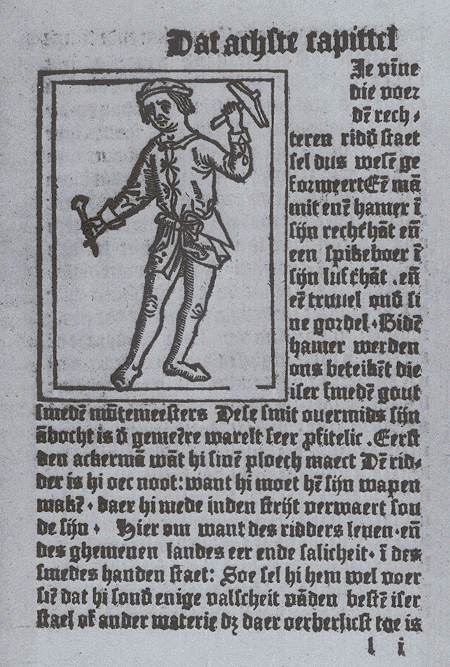 Dat achste capittel
Ie vīne
die voer
dē rech⸗
teren ridď staet
sel dus wesē ge
formeert Eē mā
mit enē hamer ī
sijn recht hāt eñ
een spikeboer ī
sijn luft hāt . eñ
eē truuel onď si
ne gordel . Bidē
hamer werden
ons beteikēt die
iser smedē gout
smedē mūtemeesters Dese smit ouermids sijn
ābocht is ď gemeēre warelt seer pfitelic . Eerst
den ackermā wāt hi sinē ploech maect Dē rid⸗
der is hi oec noot: want hi moet hē sijn wapen
makē . daer hi mede inden strijt verwaert sou
de sijn . Hier om want des ridders leuen . eñ
des ghemenen landes eer ende salicheit . ī des
smedes handen staet: Soe sel hi hem wel voer
siē dat hi sonď enige valscheit vāden bestē iser
stael of ander materie dz daer oerberlicst toe is
l i